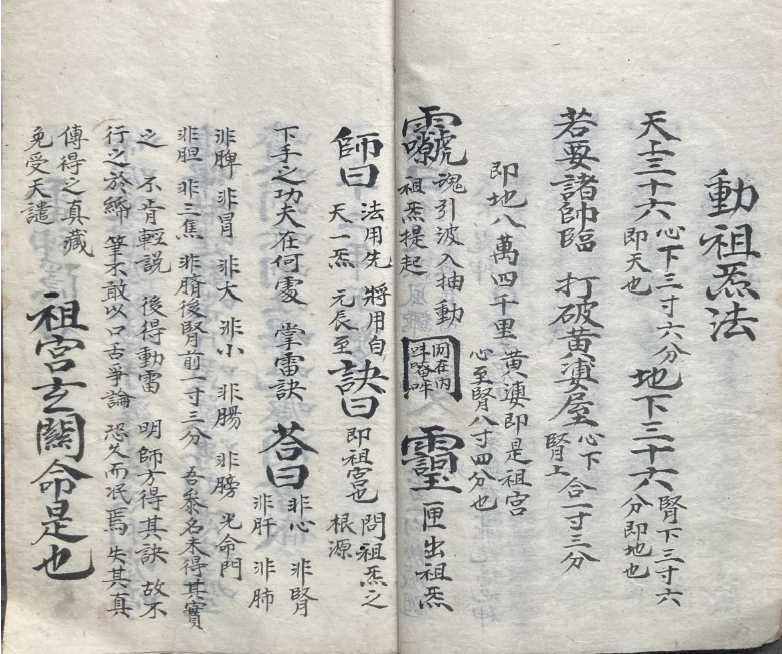 動祖炁法
天上三十六心下三寸六分即天也 地下三十六腎下三寸六分即地也
若要諸帥臨 打破黃婆屋心下腎上合一寸三分
即地八萬四千里 黃婆即是祖宮心至腎八寸四分也
魂引波入抽動祖炁提起 匣出祖炁
師曰 法用先天一炁 將用自元辰至 訣曰 即祖宮也 問祖炁之根源
下手之功夫在何處 掌雷訣 荅曰 非心 非腎 非肝 非肺
非脾 非胃 非大 非小 非腸 非膀 光命門
非胆 非三焦 非臍後腎前一寸三分 吾參名未得其實
之 不肯輕説 後得動雷 明師方得其訣 故不
行之於締 筆不敢以口舌爭論 恐久而泯焉 失其真
傳得之真藏
免受天譴 祖宮玄關命是也